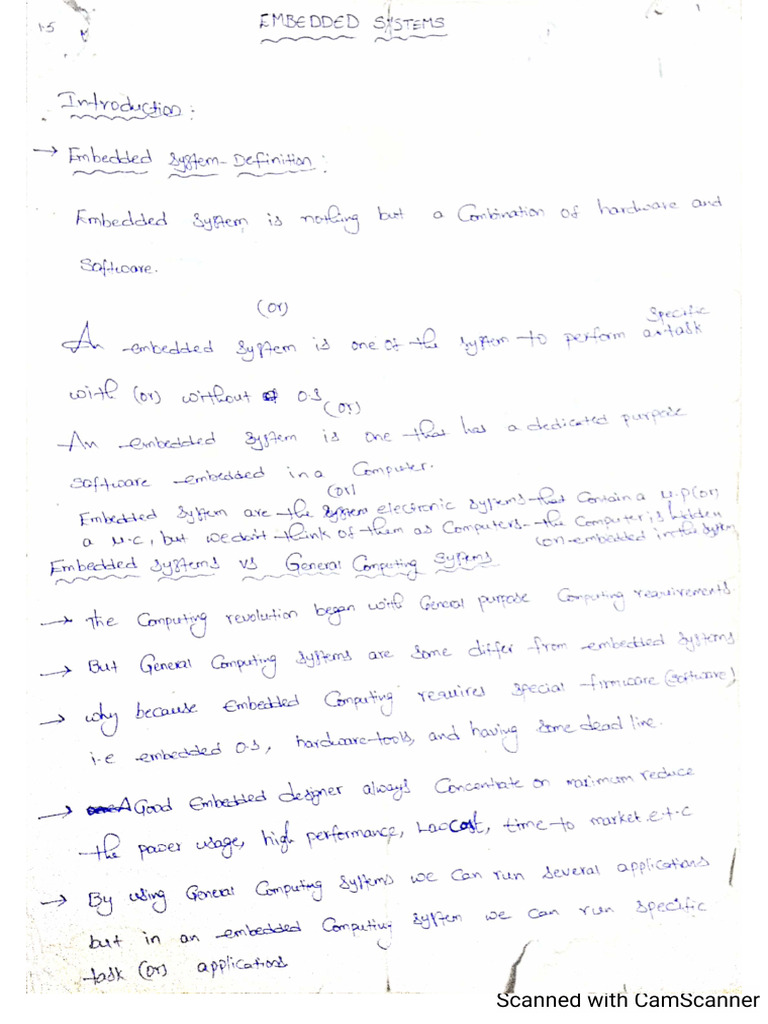 1.5
EMBEDDED SYSTEMS
Introduction:
→ Embedded System-Definition:
Embedded System is nothing but a Combination of hardware and
Software.
(or)
An embedded system is one of the system to perform a task
Specific
with (or) without O.S
(or)
An embedded System is one that has a dedicated purpose
Software embedded in a Computer.
(or)
Embedded System are the electronic systems that Contain a μ.p(or)
a μ.c, but we don't think of them as Computers-the Computer is hidden
(or) embedded in the system
Embedded Systems vs General Computing Systems
→ The Computing revolution began with General purpose Computing requirements.
→ But General Computing systems are some differ from embedded systems
→ why because Embedded Computing requires special firmware (software)
i.e embedded O.S, hardware tools, and having some dead line.
→ A Good Embedded designer always Concentrate on maximum reduce
the power usage, high performance, Cost, time to market e.t.c
→ By using General Computing Systems we can run several applications
but in an embedded Computing system we can run specific
task (or) applications
Scanned with CamScanner